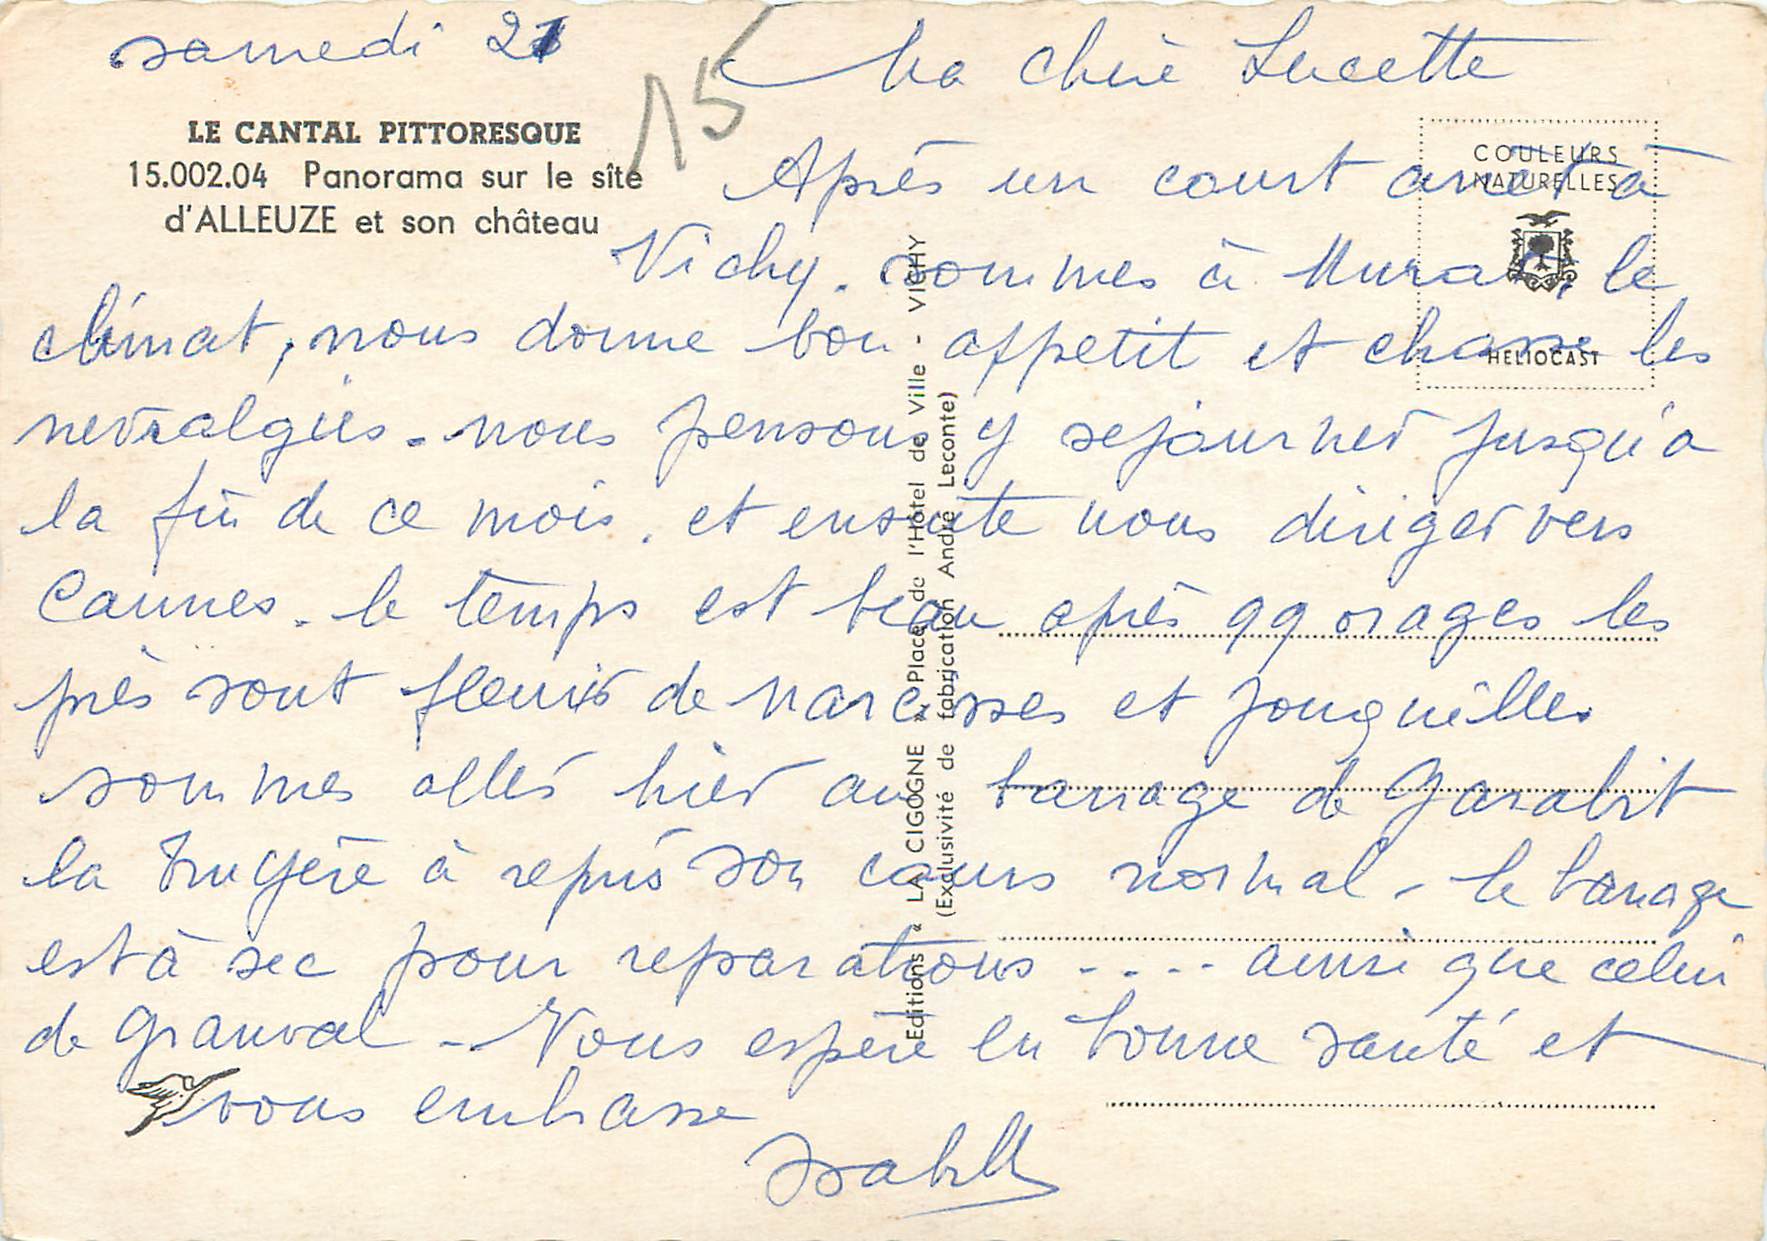 samedi 21
15
Ma chère Lucette
LE CANTAL PITTORESQUE
15.002.04 Panorama sur le sîte
d'ALLEUZE et son château
COULEURS
NATURELLES
HELIOCAST
Après un court arrêt à
Vichy. sommes à Murat, le
climat, nous donne bon appetit et chasse les
nevralgies. nous pensons y sejourner jusqu'a
la fin de ce mois. et ensuite nous diriger vers
Cannes. le temps est beau après qq orages les
près sont fleuris de narcisses et jonquilles
sommes allés hier au barrage de Garabit
la Truyère à repris son cours normal - le barrage
est à sec pour reparations .... ainsi que celui
de Granval - Vous espère en bonne santé et
vous embrasse
Isabelle
Editions « LA CIGOGNE » Place de l'Hôtel de Ville - VICHY
(Exclusivité de fabrication André Leconte)